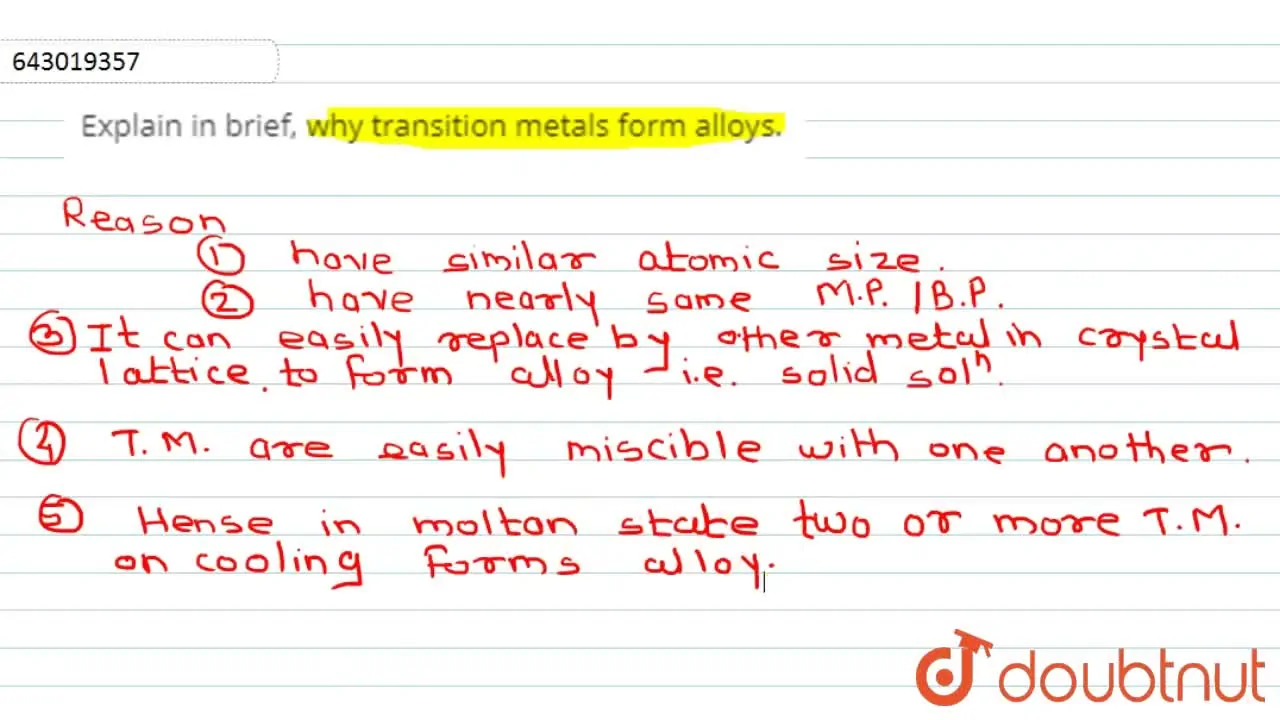 643019357
Explain in brief, why transition metals form alloys.
Reason
① have similar atomic size.
② have nearly same M.P. / B.P.
③ It can easily replace by other metal in crystal
lattice. to form alloy i.e. solid solⁿ.
④ T.M. are easily miscible with one another.
⑤ Hense in moltan state two or more T.M.
on cooling forms alloy.
doubtnut